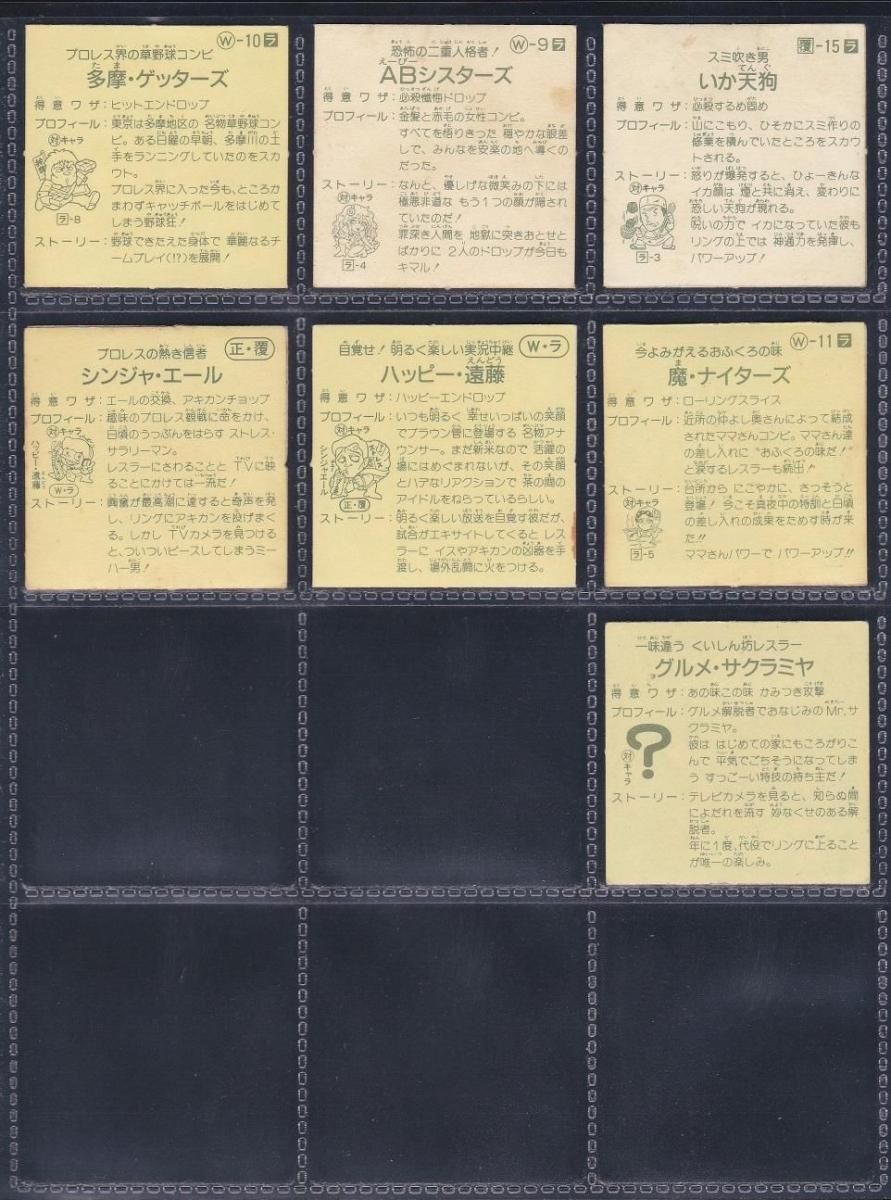 W-10 ラ
プロレス界の草野球コンビ
多摩・ゲッターズ
得意ワザ：ヒットエンドロップ
プロフィール：東京は多摩地区の 名物草野球コン
ビ。ある日曜の早朝、多摩川の土
手をランニングしていたのをスカ
ウト。
プロレス界に入った今も、ところか
まわずキャッチボールをはじめて
しまう野球狂！
対キャラ
ラ-8
ストーリー：野球できたえた身体で 華麗なるチ
ームプレイ(!?)を展開！
W-9 ラ
恐怖の二重人格者！
ABシスターズ
得意ワザ：必殺懺悔ドロップ
プロフィール：金髪と赤毛の女性コンビ。
すべてを悟りきった 穏やかな眼差
しで、みんなを安楽の地へ導くの
だった。
ストーリー：なんと、優しげな微笑みの下には
極悪非道な もう1つの顔が隠され
ていたのだ！
罪深き人間を 地獄に突きおとせと
ばかりに 2人のドロップが今日も
キマル！
対キャラ
ラ-4
覆-15 ラ
スミ吹き男
いか天狗
得意ワザ：必殺するめ固め
プロフィール：山にこもり、ひそかにスミ作りの
修業を積んでいたところをスカウ
トされる。
ストーリー：怒りが爆発すると、ひょーきんな
イカ顔は 煙と共に消え、変わりに
恐しい天狗が現れる。
呪いの力で イカになっていた彼も
リングの上では 神通力を発揮し、
パワーアップ！
対キャラ
ラ-3
正・覆
プロレスの熱き信者
シンジャ・エール
得意ワザ：エールの交換、アキカンチョップ
プロフィール：趣味のプロレス観戦に命をかけ、
日頃のうっぷんをはらす ストレス・
サラリーマン。
レスラーにさわることと TVに映
ることにかけては一流だ！
対キャラ
ハッピー・遠藤
W・ラ
ストーリー：興奮が最高潮に達すると奇声を発
し、リングにアキカンを投げまく
る。しかし TVカメラを見つける
と、ついついピースしてしまうミー
ハー男！
W・ラ
目覚せ！ 明るく楽しい実況中継
ハッピー・遠藤
得意ワザ：ハッピーエンドロップ
プロフィール：いつも明るく 幸せいっぱいの笑顔
でブラウン管に登場する 名物アナ
ウンサー。まだ新米なので 活躍の
場にはめぐまれないが、その笑顔
とハデなリアクションで 茶の間の
アイドルをねらっているらしい。
対キャラ
シンジャ・エール
正・覆
ストーリー：明るく楽しい放送を目覚す彼だが、
試合がエキサイトしてくると レス
ラーに イスやアキカンの凶器を手
渡し、場外乱闘に火をつける。
W-11 ラ
今よみがえるおふくろの味
魔・ナイターズ
得意ワザ：ローリングスライス
プロフィール：近所の仲よし奥さんによって結成
されたママさんコンビ。ママさん達
の差し入れに "おふくろの味だ！"
と涙するレスラーも続出！
ストーリー：台所から にこやかに、さっそうと
登場！ 今こそ真夜中の特訓と日頃
の差し入れの成果をためす時が来
た!!
ママさんパワーで パワーアップ!!
対キャラ
ラ-5
一味違う くいしん坊レスラー
グルメ・サクラミヤ
得意ワザ：あの味この味 かみつき攻撃
プロフィール：グルメ解説者でおなじみのMr.サ
クラミヤ。
彼は はじめての家にもころがりこ
んで 平気でごちそうになってしま
う すっごーい特技の持ち主だ！
対キャラ
?
ストーリー：テレビカメラを見ると、知らぬ間
によだれを流す 妙なくせのある解
説者。
年に1度、代役でリングに上ること
が唯一の楽しみ。